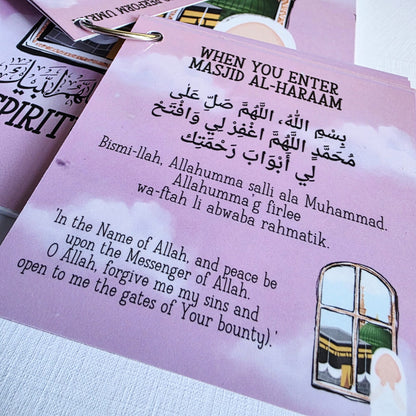 PERFORM UMRA
SPIRIT
WHEN YOU ENTER
MASJID AL-HARAAM
بِسْمِ اللهِ، اللَّهُمَّ صَلِّ عَلَى
مُحَمَّدٍ اللَّهُمَّ اغْفِرْ لِي وَافْتَحْ
لِي أَبْوَابَ رَحْمَتِكَ
Bismi-llah, Allahumma salli ala Muhammad.
Allahumma g firlee
wa-ftah li abwaba rahmatik.
'In the Name of Allah, and peace be
upon the Messenger of Allah.
O Allah, forgive me my sins and
open to me the gates of Your bounty).'